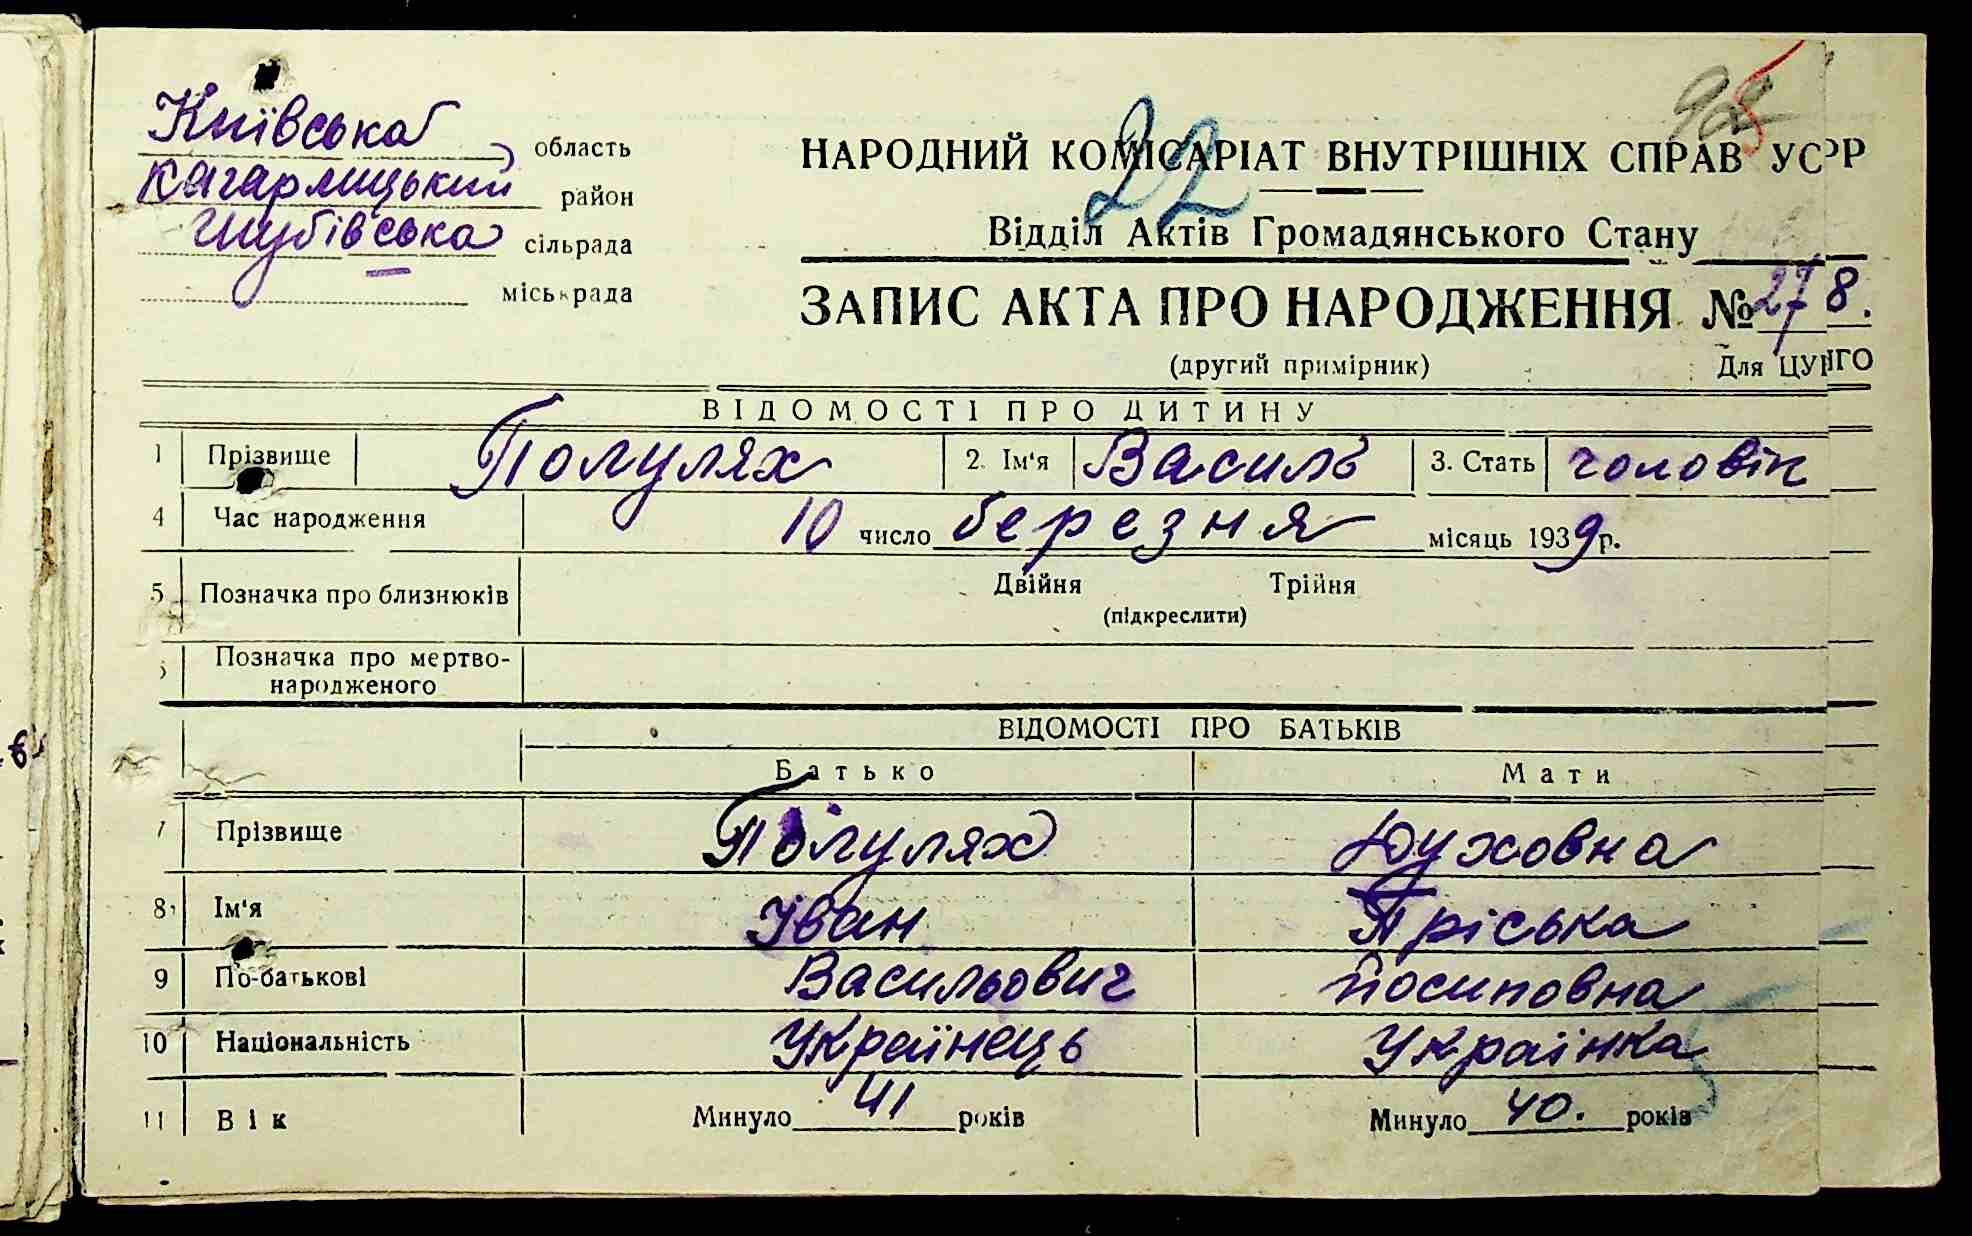 Київська область
Кагарлицький район
Шубівська сільрада
міськрада
22
НАРОДНИЙ КОМІСАРІАТ ВНУТРІШНІХ СПРАВ УСРР
Відділ Актів Громадянського Стану
ЗАПИС АКТА ПРО НАРОДЖЕННЯ №278.
(другий примірник) Для ЦУНГО
ВІДОМОСТІ ПРО ДИТИНУ
1 Прізвище Полулях 2. Ім'я Василь 3. Стать чоловік
4 Час народження 10 число березня місяць 1939 р.
5 Позначка про близнюків Двійня Трійня
(підкреслити)
Позначка про мертво-
народженого
ВІДОМОСТІ ПРО БАТЬКІВ
Батько Мати
7 Прізвище Полулях Духовна
8 Ім'я Іван Пріська
9 По-батькові Васильович Йосиповна
10 Національність Українець Українка
11 Вік Минуло 41 років Минуло 40. років